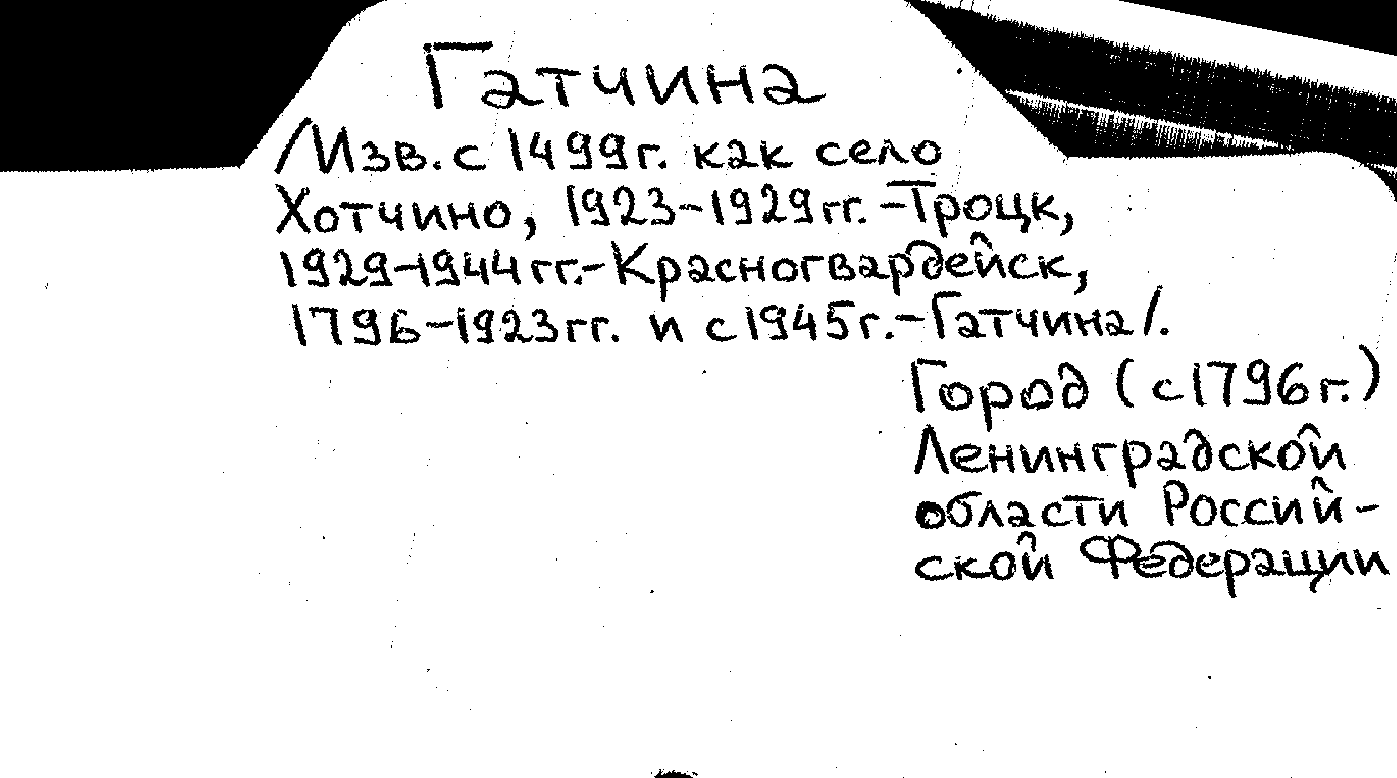 Гатчина
/Изв. с 1499г. как село
Хотчино, 1923-1929гг.-Троцк,
1929-1944гг.-Красногвардейск,
1796-1923гг. и с 1945г.-Гатчина/.
Город (с 1796г.)
Ленинградской
области Россий-
ской Федерации